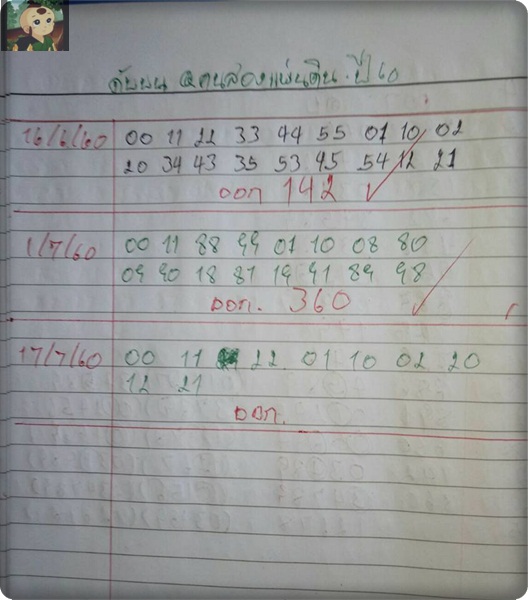 คนสองแผ่นดิน. ปี 60
16/6/60 00 11 22 33 44 55 01 10 02
20 34 43 35 53 45 54 12 21
ออก 142
1/7/60 00 11 88 99 01 10 08 80
09 90 18 81 19 91 89 98
ออก. 360
17/7/60 00 11 22 01 10 02 20
12 21
ออก.